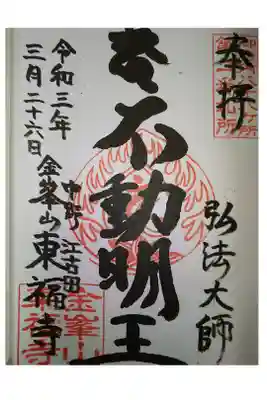 奉拝
弘法大師
不動明王
中野
江古田
金峯山東福寺
令和三年
三月二十六日
金峯山
東福寺